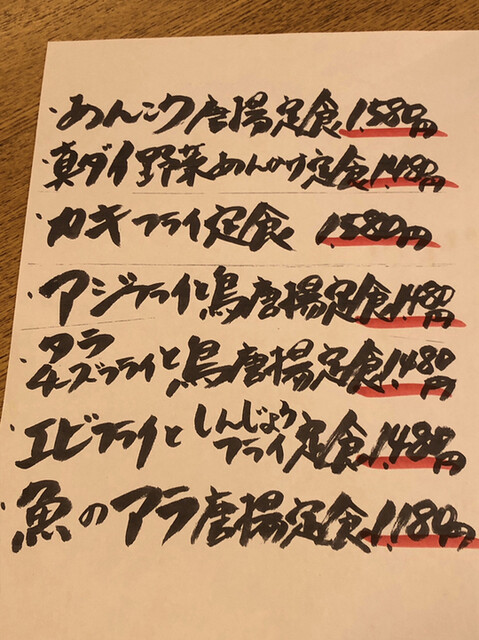 ・あんこう唐揚定食1,580円
・真ダイ野菜あんかけ定食1,480円
・カキフライ定食 1,580円
・アジフライと鳥唐揚定食1,480円
・タラチーズフライと鳥唐揚定食1,480円
・エビフライとしんじょうフライ定食1,480円
・魚のアラ唐揚定食1,180円